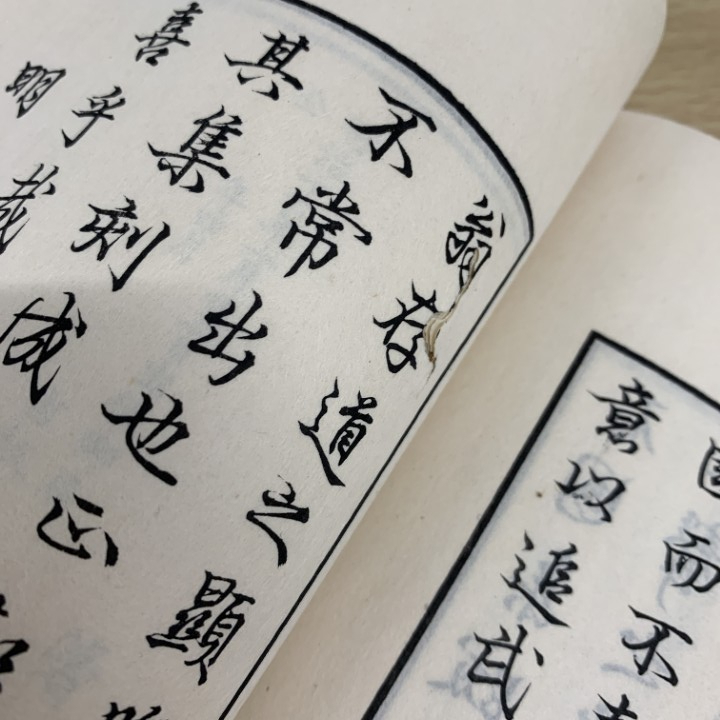 而不
意以追武
翁存道之顯
不常出也正
其集刻成
喜乎哉
明